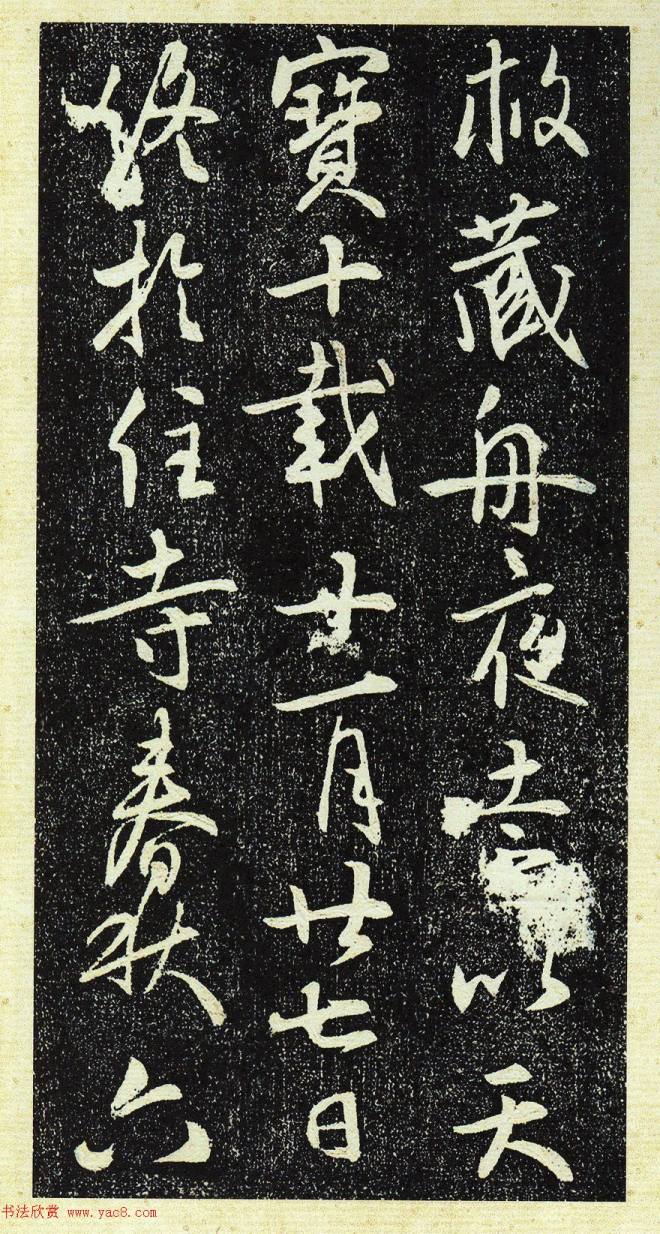 救藏舟夜去以天
寶十載一月廿七日
終於住寺春秋六
书法欣赏 www.yac8.com